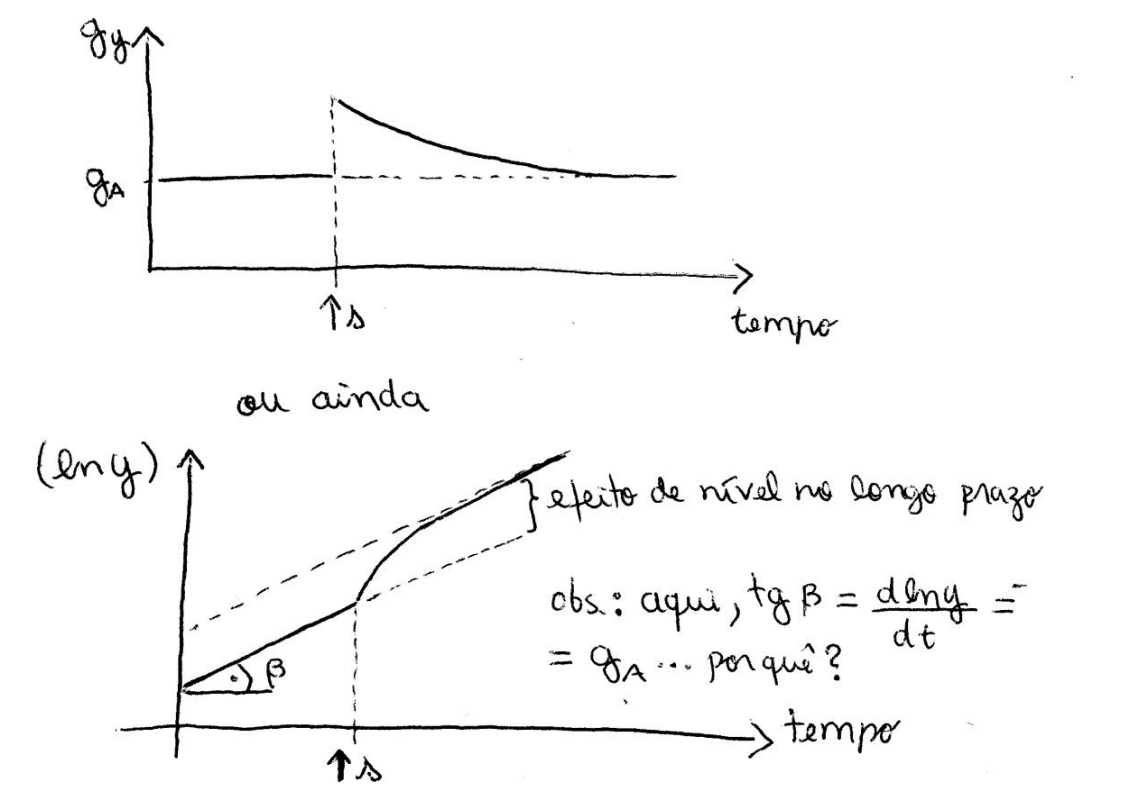 gy
gA
↑s
tempo
ou ainda
(ln y)
efeito de nível no longo prazo
obs.: aqui, tg β = dlny/dt =
= gA ... porquê?
β
tempo
↑s